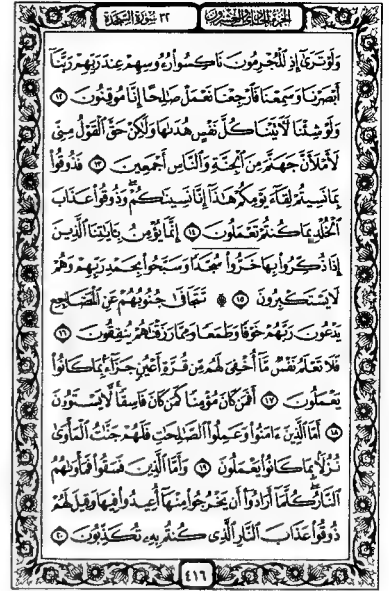 الجزء الحادي والعشرون ٣٢ سورة السجدة
وَلَوْ تَرَىٰ إِذِ الْمُجْرِمُونَ نَاكِسُوا رُءُوسِهِمْ عِندَ رَبِّهِمْ رَبَّنَا
أَبْصَرْنَا وَسَمِعْنَا فَارْجِعْنَا نَعْمَلْ صَالِحًا إِنَّا مُوقِنُونَ ١٢
وَلَوْ شِئْنَا لَآتَيْنَا كُلَّ نَفْسٍ هُدَاهَا وَلَٰكِنْ حَقَّ الْقَوْلُ مِنِّي
لَأَمْلَأَنَّ جَهَنَّمَ مِنَ الْجِنَّةِ وَالنَّاسِ أَجْمَعِينَ ١٣ فَذُوقُوا
بِمَا نَسِيتُمْ لِقَاءَ يَوْمِكُمْ هَٰذَا إِنَّا نَسِينَاكُمْ وَذُوقُوا عَذَابَ
الْخُلْدِ بِمَا كُنتُمْ تَعْمَلُونَ ١٤ إِنَّمَا يُؤْمِنُ بِآيَاتِنَا الَّذِينَ
إِذَا ذُكِّرُوا بِهَا خَرُّوا سُجَّدًا وَسَبَّحُوا بِحَمْدِ رَبِّهِمْ وَهُمْ
لَا يَسْتَكْبِرُونَ ١٥ ۞ تَتَجَافَىٰ جُنُوبُهُمْ عَنِ الْمَضَاجِعِ
يَدْعُونَ رَبَّهُمْ خَوْفًا وَطَمَعًا وَمِمَّا رَزَقْنَاهُمْ يُنفِقُونَ ١٦
فَلَا تَعْلَمُ نَفْسٌ مَّا أُخْفِيَ لَهُم مِّن قُرَّةِ أَعْيُنٍ جَزَاءً بِمَا كَانُوا
يَعْمَلُونَ ١٧ أَفَمَن كَانَ مُؤْمِنًا كَمَن كَانَ فَاسِقًا لَّا يَسْتَوُونَ
١٨ أَمَّا الَّذِينَ آمَنُوا وَعَمِلُوا الصَّالِحَاتِ فَلَهُمْ جَنَّاتُ الْمَأْوَىٰ
نُزُلًا بِمَا كَانُوا يَعْمَلُونَ ١٩ وَأَمَّا الَّذِينَ فَسَقُوا فَمَأْوَاهُمُ
النَّارُ كُلَّمَا أَرَادُوا أَن يَخْرُجُوا مِنْهَا أُعِيدُوا فِيهَا وَقِيلَ لَهُمْ
ذُوقُوا عَذَابَ النَّارِ الَّذِي كُنتُم بِهِ تُكَذِّبُونَ ٢٠
٤١٦